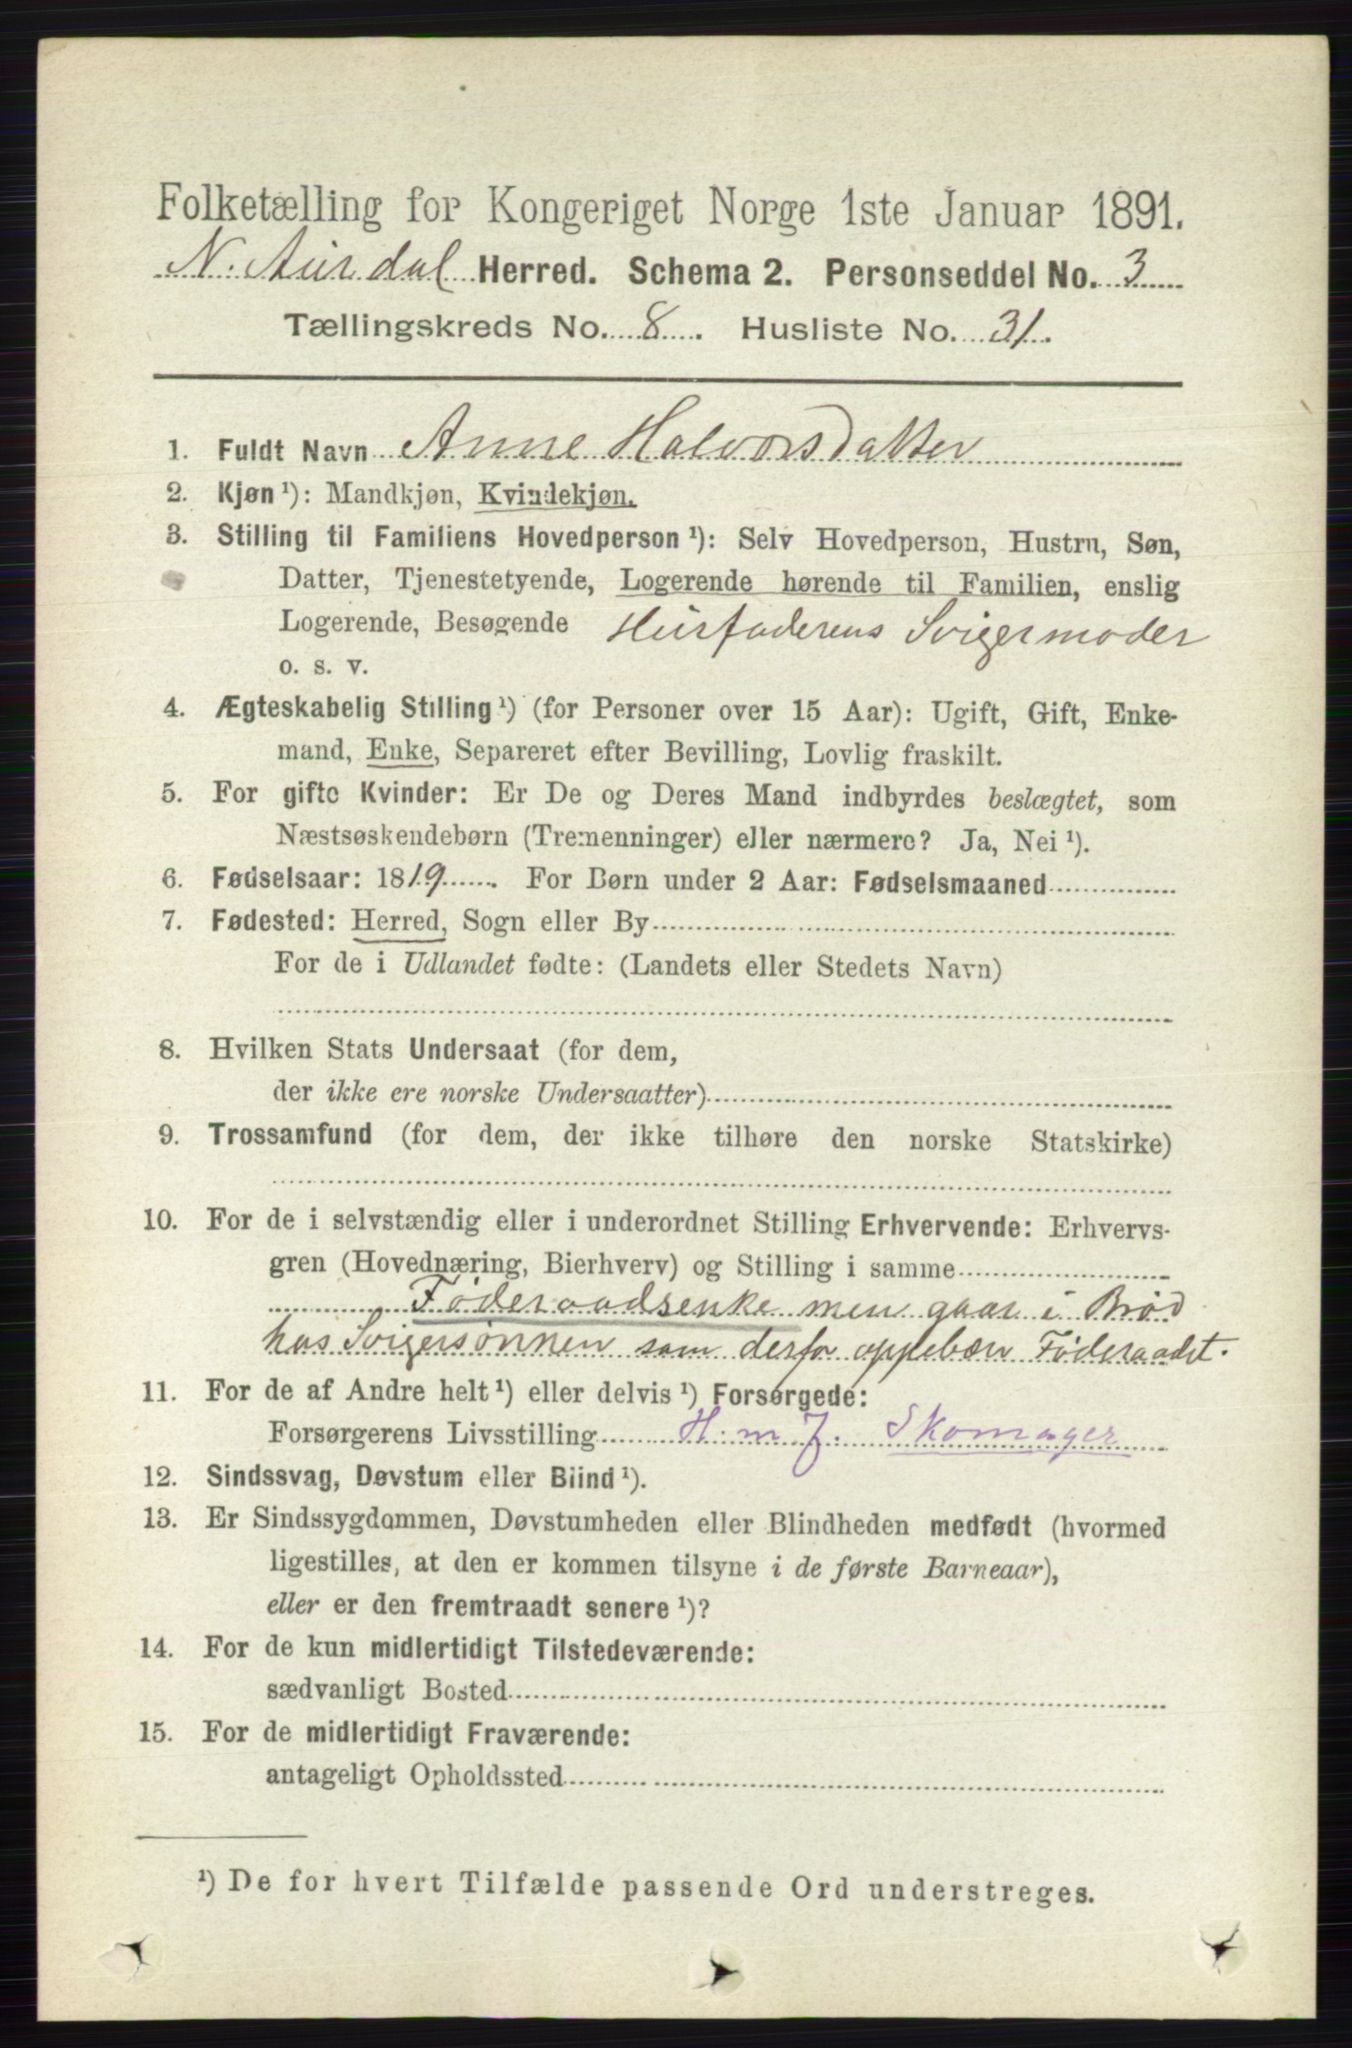 Folketælling for Kongeriget Norge 1ste Januar 1891.
N. Aurdal Herred. Schema 2. Personseddel No. 3
Tællingskreds No. 8. Husliste No. 31.
1. Fuldt Navn Anne Halvorsdatter
2. Kjøn ¹): Mandkjøn, Kvindekjøn.
3. Stilling til Familiens Hovedperson ¹): Selv Hovedperson, Hustru, Søn,
Datter, Tjenestetyende, Logerende hørende til Familien, enslig
Logerende, Besøgende Husfaderens Svigermoder
o. s. v.
4. Ægteskabelig Stilling ¹) (for Personer over 15 Aar): Ugift, Gift, Enke-
mand, Enke, Separeret efter Bevilling, Lovlig fraskilt.
5. For gifte Kvinder: Er De og Deres Mand indbyrdes beslægtet, som
Næstsøskendebørn (Tremenninger) eller nærmere? Ja, Nei ¹).
6. Fødselsaar: 1819. For Børn under 2 Aar: Fødselsmaaned
7. Fødested: Herred, Sogn eller By
For de i Udlandet fødte: (Landets eller Stedets Navn)
8. Hvilken Stats Undersaat (for dem,
der ikke ere norske Undersaatter)
9. Trossamfund (for dem, der ikke tilhøre den norske Statskirke)
10. For de i selvstændig eller i underordnet Stilling Erhvervende: Erhvervs-
gren (Hovednæring, Bierhverv) og Stilling i samme
Føderaadsenke men gaar i Brød
hos Svigersønnen som derfor oppebær Føderaadet.
11. For de af Andre helt ¹) eller delvis ¹) Forsørgede:
Forsørgerens Livsstilling H. m J. Skomager
12. Sindssvag, Døvstum eller Blind ¹).
13. Er Sindssygdommen, Døvstumheden eller Blindheden medfødt (hvormed
ligestilles, at den er kommen tilsyne i de første Barneaar),
eller er den fremtraadt senere ¹)?
14. For de kun midlertidigt Tilstedeværende:
sædvanligt Bosted
15. For de midlertidigt Fraværende:
antageligt Opholdssted
¹) De for hvert Tilfælde passende Ord understreges.